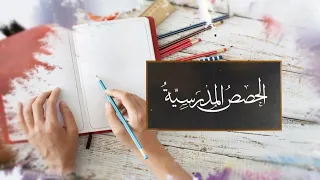 الحِصَصُ المَدْرَسِيَّةُ